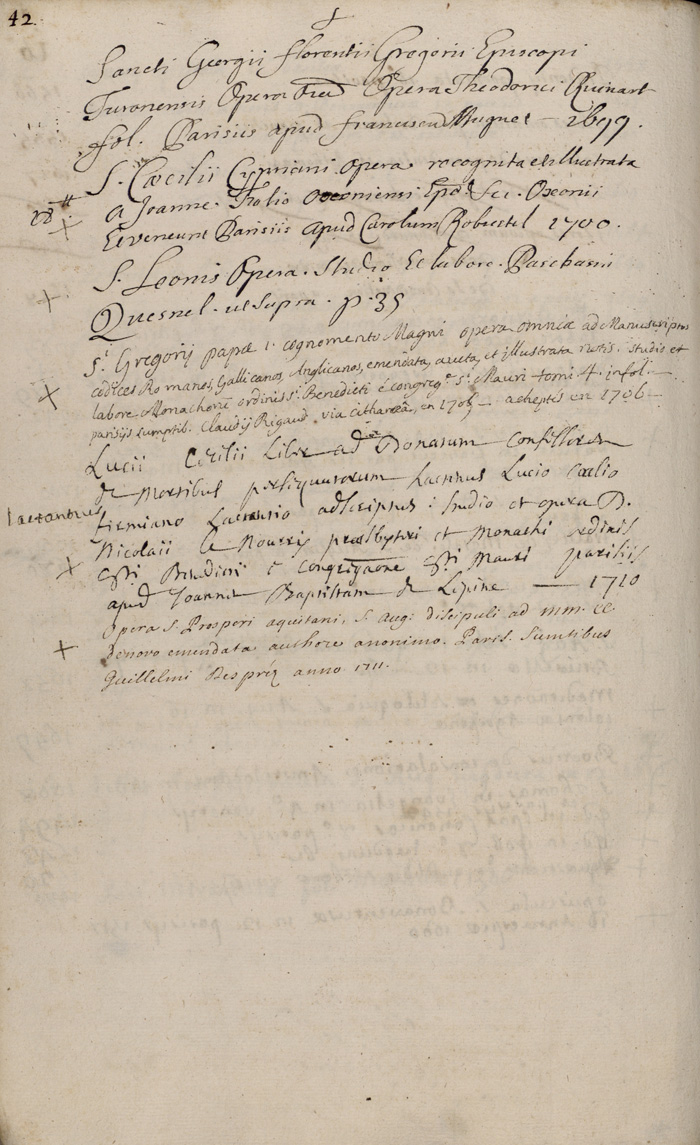 42.
Sancti Georgii florentii Gregorii Episcopi
Turonensis Opera Opera Theodorici Ruinart
fol. Parisiis apud franciscum Muguet — 1699.
S. Cæcilii Cypriani opera recognita et illustrata
a Joanne. Oxoniensi Oxonii
Et veneunt Parisiis apud Carolum Robustel 1700.
S. Leonis Opera. Studio Et labore. Paschasii
Quesnel. ut supra. p. 35
S.ti Gregorij papæ 1. cognomento Magni opera omnia ad Manuscriptos
codices Romanos, Gallicanos, Anglicanos, emendata, aucta, et illustrata notis. studio et
labore Monachorum ordinis s.ti Benedicti è congreg.e s.ti Mauri tomi 4. in fol. —
parisijs sumptib. Claudij Rigaud via citharæa, en 1705 — acheptés en 1706 —
Lucii Cecilii Liber ad Donatum Confessorem
de Mortibus persequutorum hactenus Lucio Cælio
Lactantius
firmiano Lactantio adscriptus: studio et opera D.
Nicolaii le Nourry presbyteri et Monachi ordinis
Sti Benedicti è congregaone Sti Mauri parisiis
apud Joannem Baptistam de Lepine — 1710
Opera S. Prosperi aquitani, S. Aug: discipuli ad mm. cc.
Denovo emendata authore anonimo. Paris. Sumtibus
Guillelmi Despréz anno 1711.